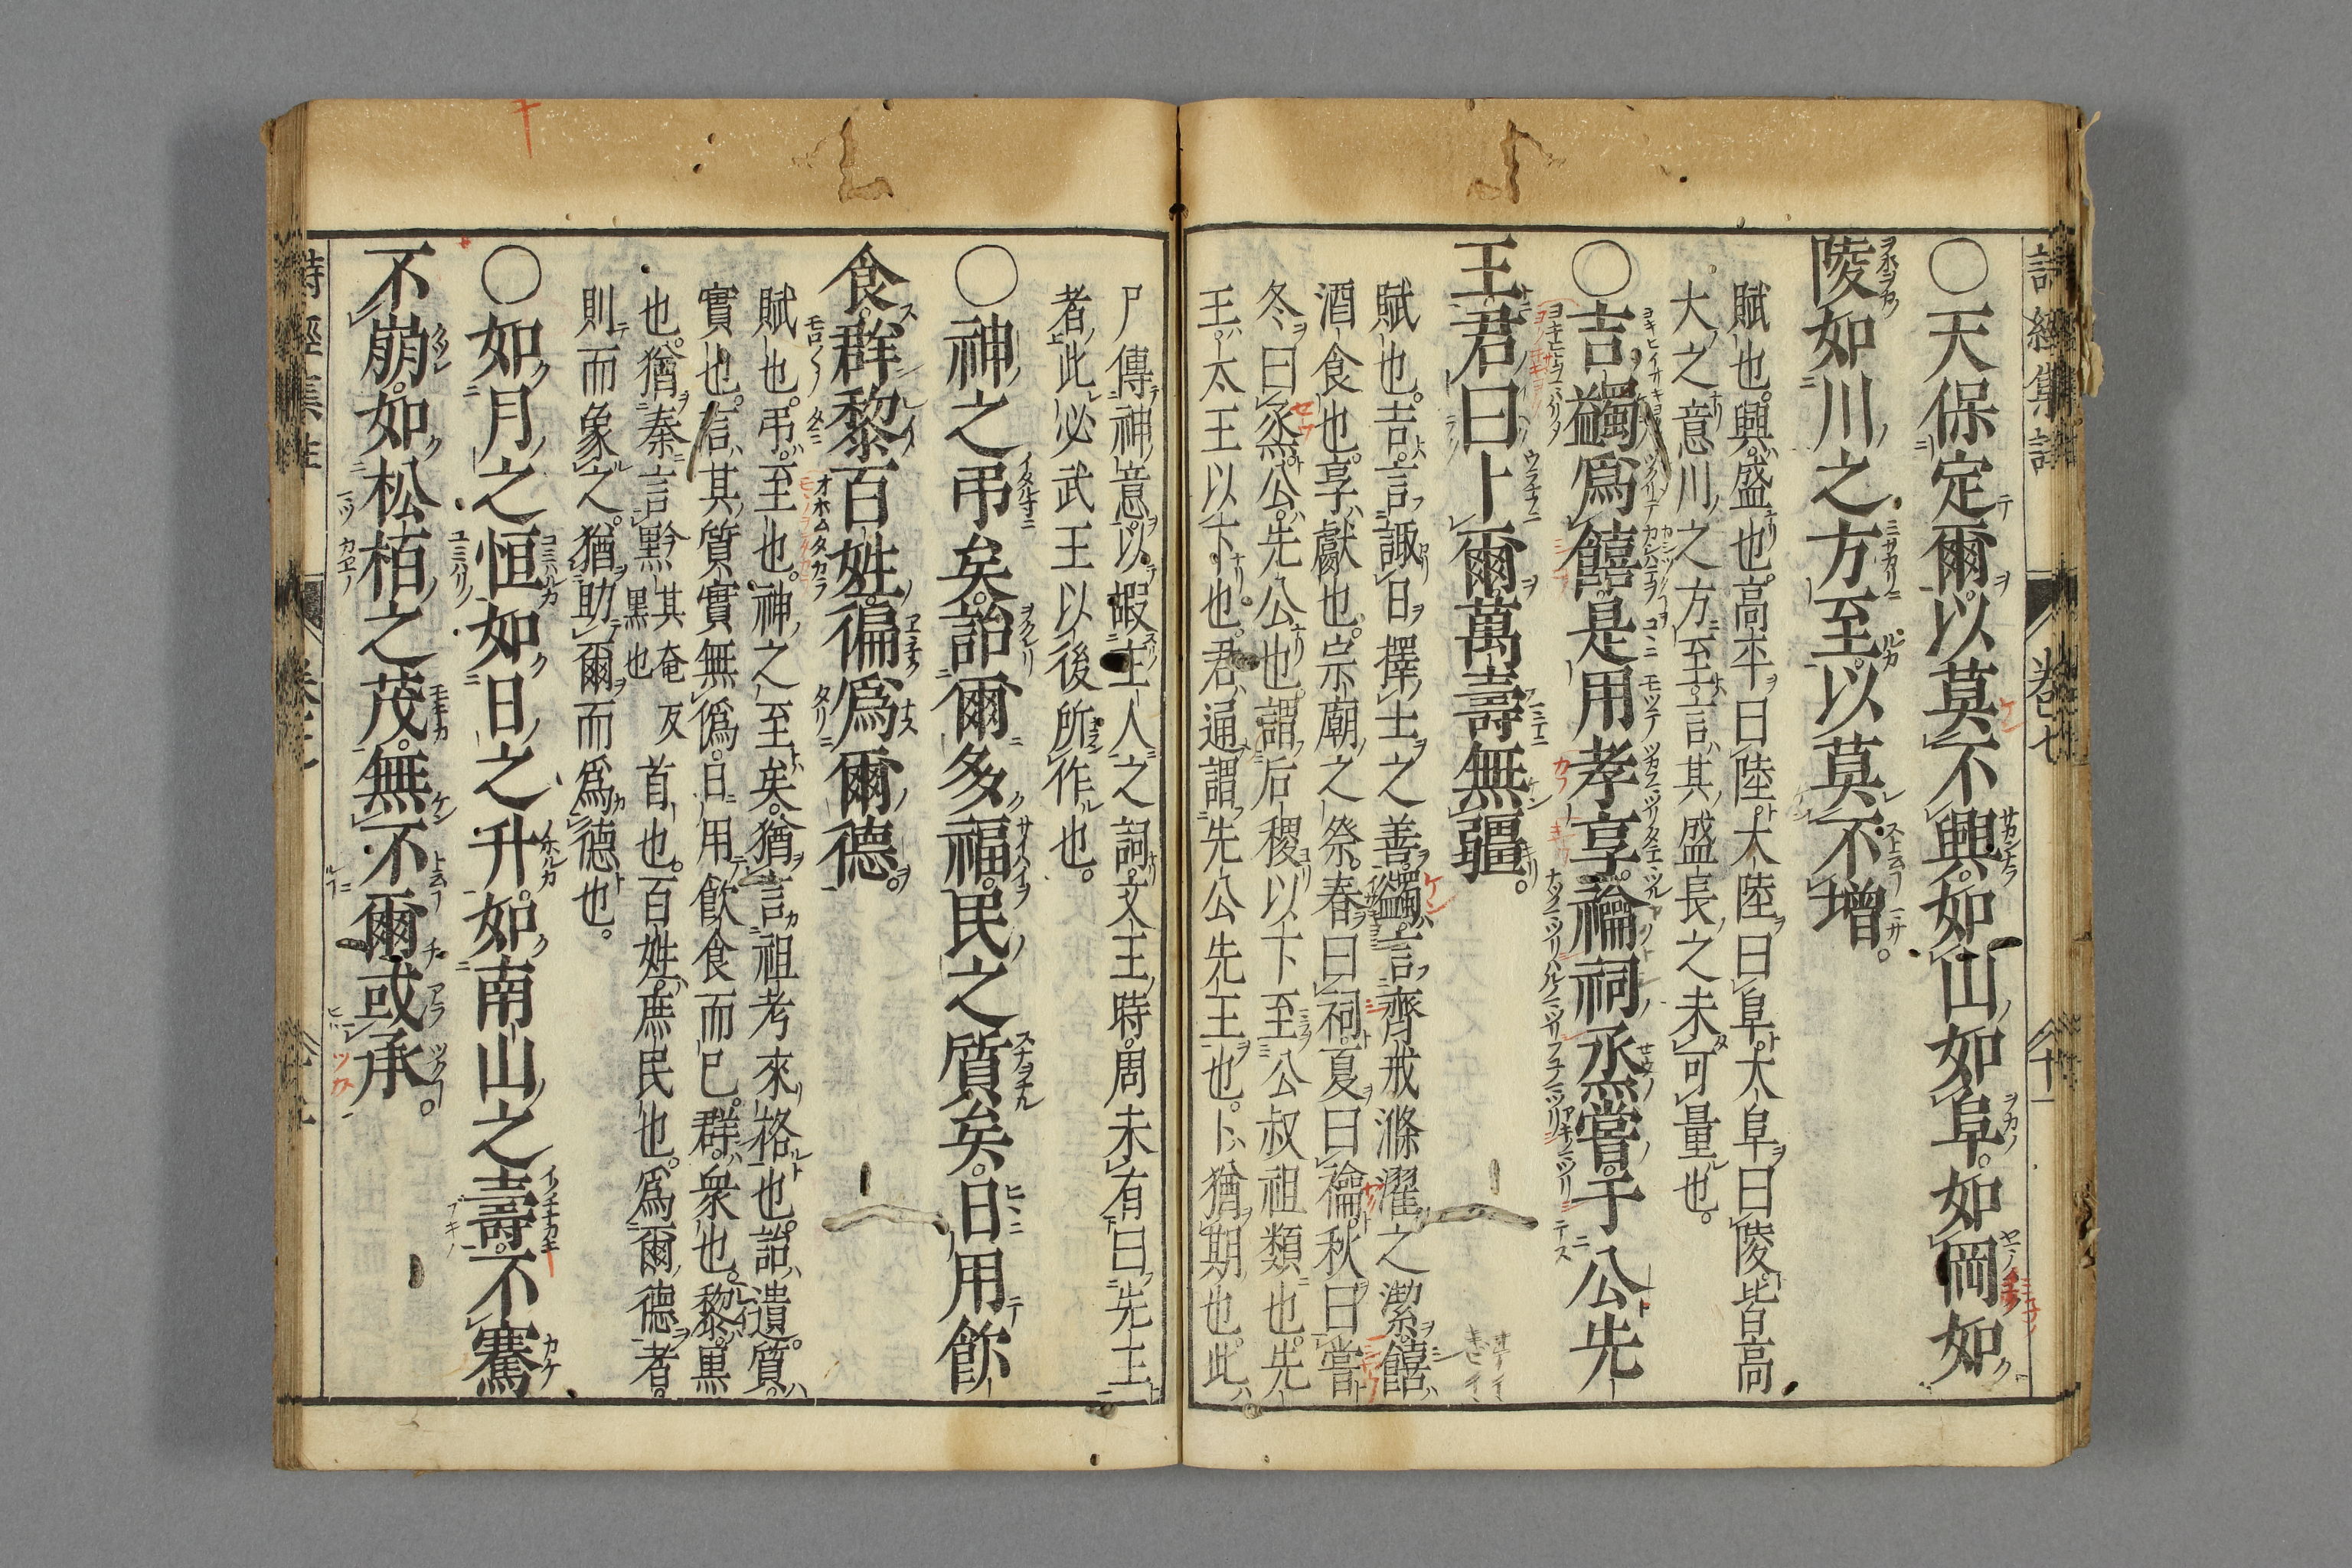 詩經集註 卷七 十一
○天保定爾以莫不興如山如阜如岡如
陵如川之方至以莫不增
賦也興盛也高平曰陸大陸曰阜大阜曰陵皆高
大之意川之方至言其盛長之未可量也
○吉蠲爲饎是用孝享禴祠烝嘗于公先
王君曰卜爾萬壽無疆
賦也吉言諏日擇士之善蠲言齊戒滌濯之潔饎
酒食也享獻也宗廟之祭春曰祠夏曰禴秋曰嘗
冬曰烝公先公也謂后稷以下至公叔祖類也先
王太王以下也君通謂先公先王也卜猶期也此
尸傳神意以嘏主人之詞文王時周未有曰先王
者此必武王以後所作也
○神之弔矣詒爾多福民之質矣日用飮
食群黎百姓徧爲爾德
賦也弔至也神之至矣猶言祖考來格也詒遺質
實也言其質實無僞日用飮食而已群衆也黎黑
也猶秦言黔首也百姓庶民也爲爾德者
黔其奄反
黑也
則而象之猶助爾而爲德也
○如月之恒如日之升如南山之壽不騫
不崩如松栢之茂無不爾或承
詩經集註